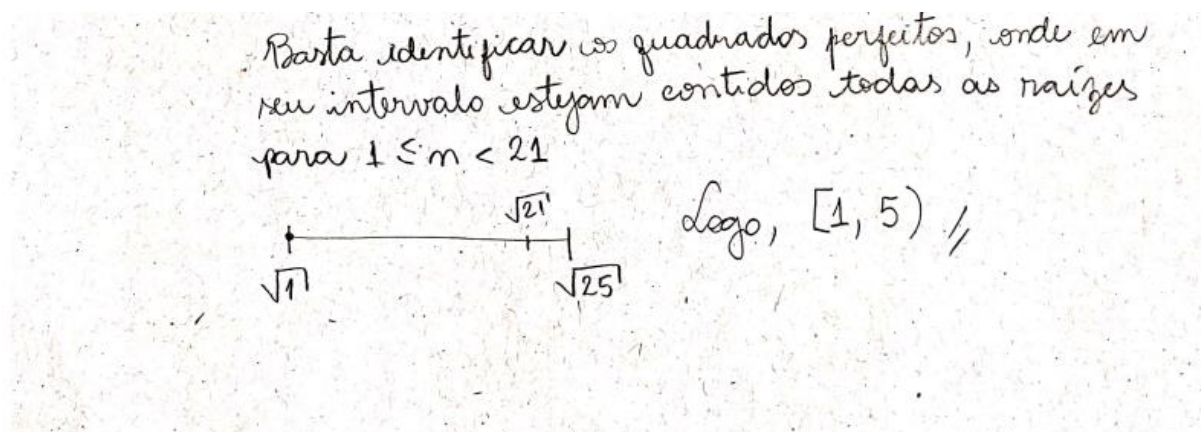 Basta identificar os quadrados perfeitos, onde em
seu intervalo estejam contidos todas as raízes
para 1 ≤ n < 21
√21
Logo, [1, 5) //
√1 √25